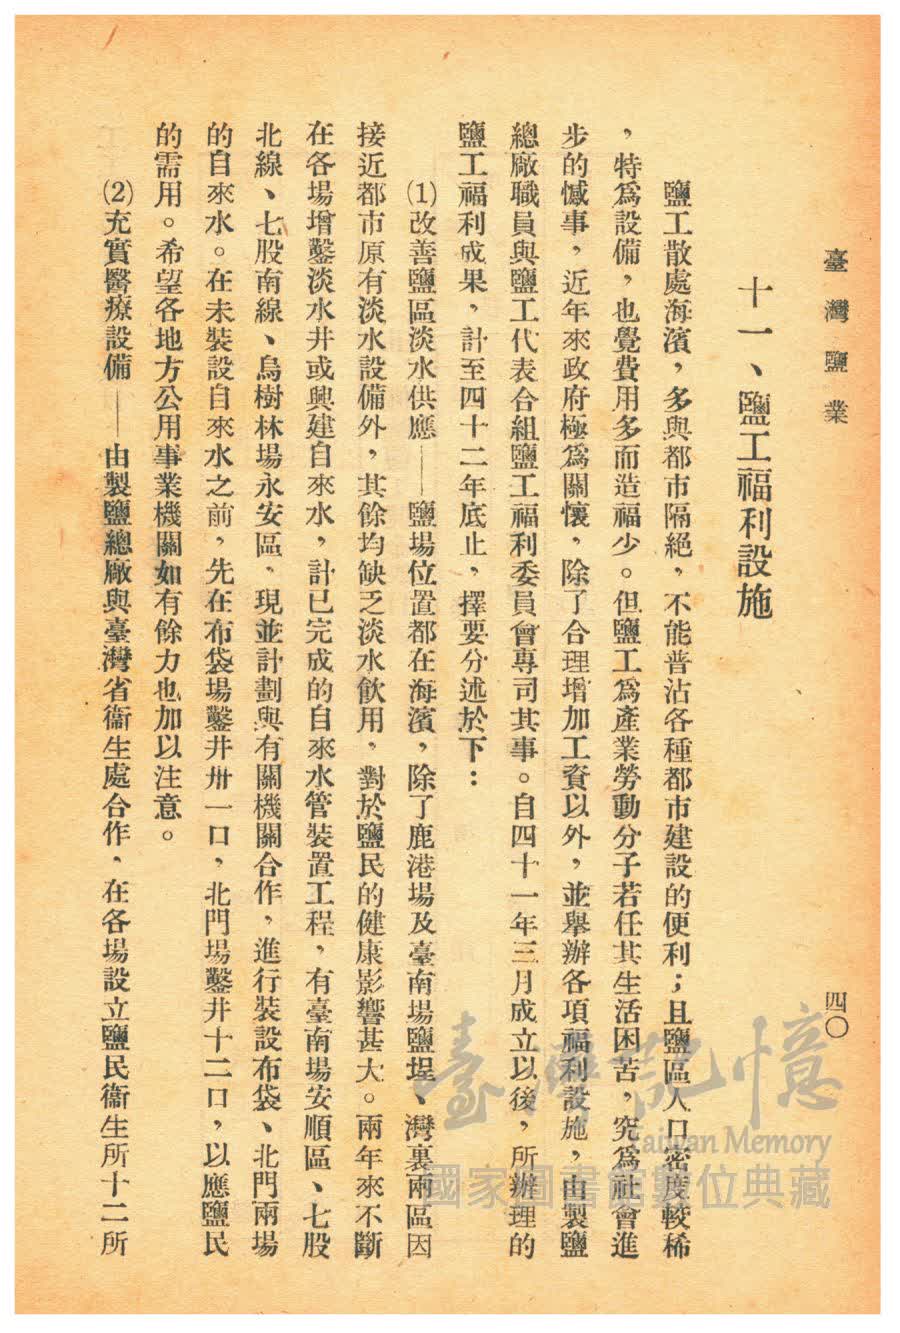 臺灣鹽業
四〇
十一、鹽工福利設施
鹽工散處海濱，多與都市隔絕，不能普沾各種都市建設的便利；且鹽區人口密度較稀
，特爲設備，也覺費用多而造福少。但鹽工爲產業勞動分子若任其生活困苦，究爲社會進
步的憾事，近年來政府極爲關懷，除了合理增加工資以外，並舉辦各項福利設施，由製鹽
總廠職員與鹽工代表合組鹽工福利委員會專司其事。自四十一年三月成立以後，所辦理的
鹽工福利成果，計至四十二年底止，擇要分述於下：
(1)改善鹽區淡水供應——鹽場位置都在海濱，除了鹿港場及臺南場鹽埕、灣裏兩區因
接近都市原有淡水設備外，其餘均缺乏淡水飲用，對於鹽民的健康影響甚大。兩年來不斷
在各場增鑿淡水井或興建自來水，計已完成的自來水管裝置工程，有臺南場安順區、七股
北線、七股南線、烏樹林場永安區，現並計劃與有關機關合作，進行裝設布袋、北門兩場
的自來水。在未裝設自來水之前，先在布袋場鑿井卅一口，北門場鑿井十二口，以應鹽民
的需用。希望各地方公用事業機關如有餘力也加以注意。
(2)充實醫療設備——由製鹽總廠與臺灣省衞生處合作，在各場設立鹽民衞生所十二所
臺灣記憶
Taiwan Memory
國家圖書館數位典藏